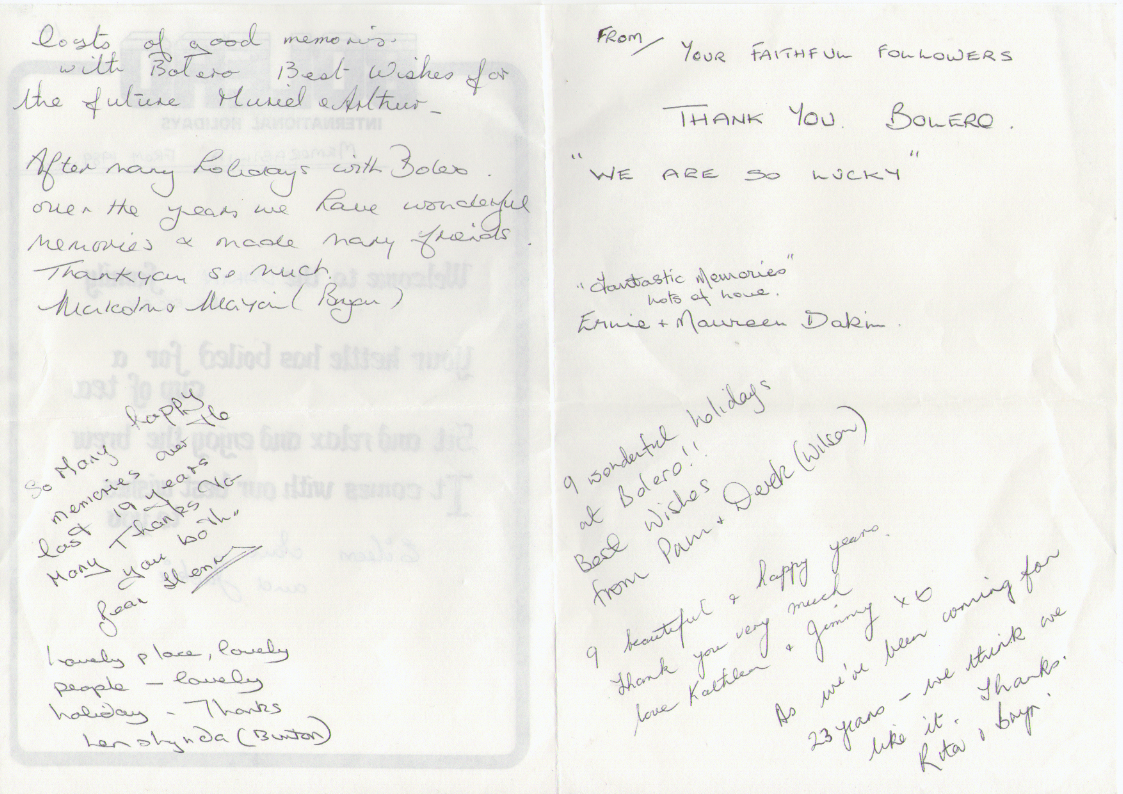 Losts of good memoris.
with Bolero Best Wishes for
the future Muriel & Arthur
After many holidays with Bolero.
over the years we have wonderful
memories & made many friends.
Thankyou so much.
(Bryan)
So Many happy
memories over the
last 19 years
Many Thanks to
you both.
Lovely place, lovely
people - lovely
holiday - Thanks
Len & Lynda (Burton)
FROM/ YOUR FAITHFUL FOLLOWERS
THANK YOU. BOLERO.
"WE ARE SO LUCKY"
"Fantastic Memories"
Lots of love.
Ernie + Maureen Dakin.
9 wonderful holidays
at Bolero!!
Best Wishes
from Pam + Derek (Wilson)
9 beautiful & happy years.
Thank you very much
love Kathleen & Jimmy xo
As we've been coming for
23 years - we think we
like it. Thanks.
Rita &
INTERNATIONAL HOLIDAYS
FROM
Welcome to the family
Your kettle has boiled for a
cup of tea
Sit and relax and enjoy the brew
It comes with our best wishes
to you
and